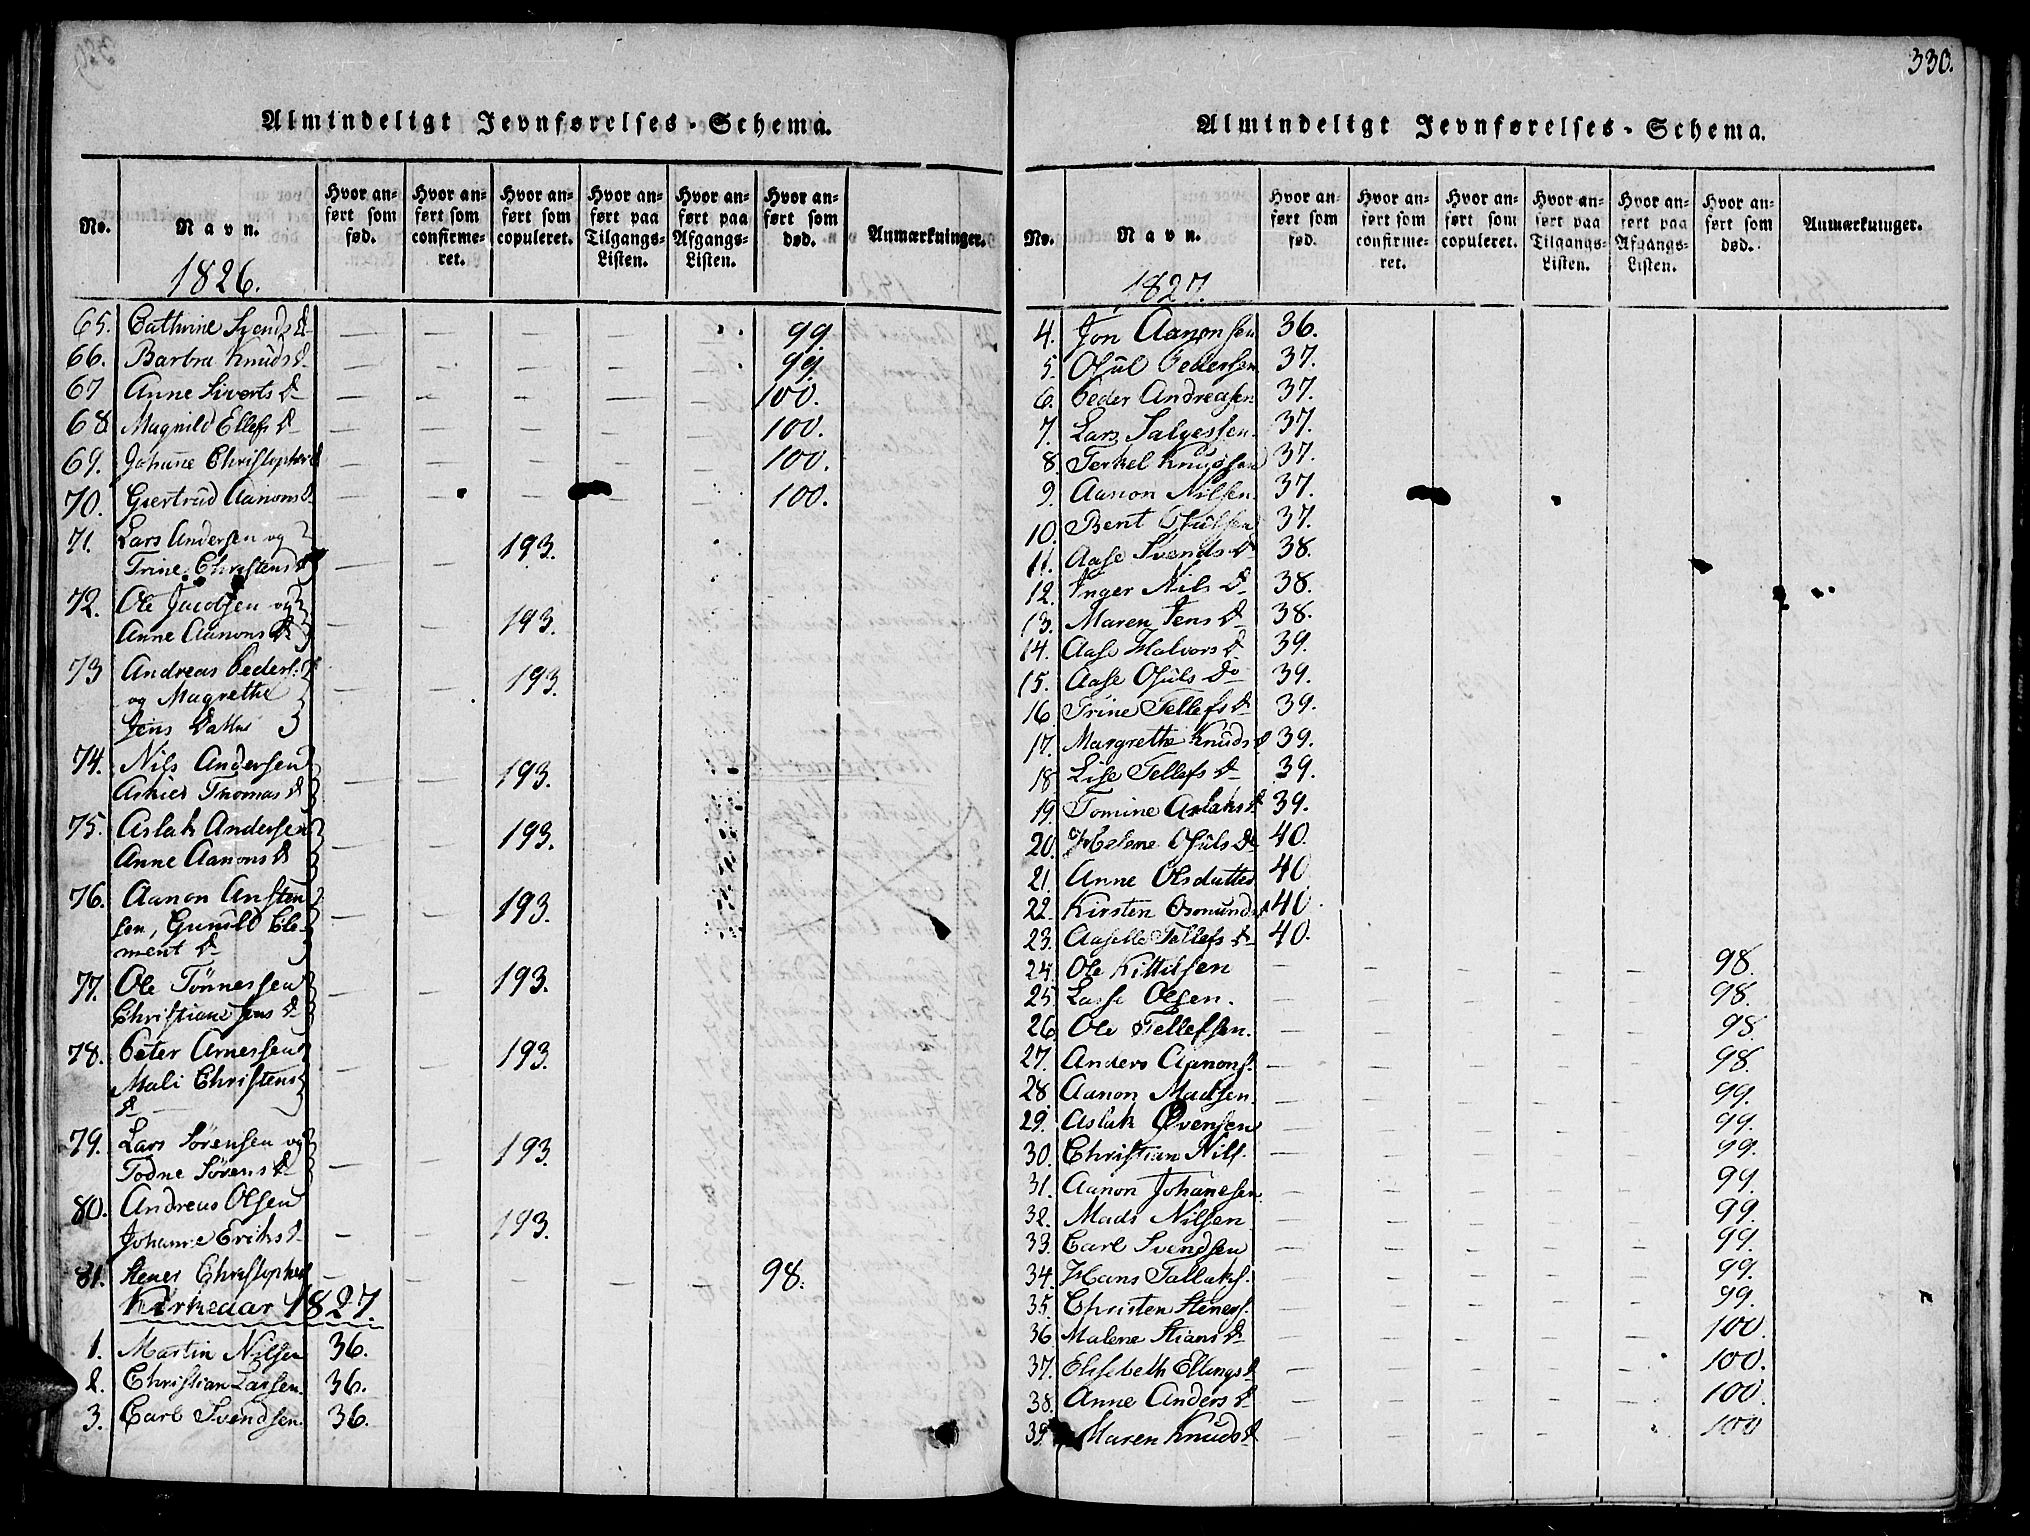 Almindeligt Jevnførelses-Schema.
No.
Navn.
Hvor anført som fød.
Hvor anført som confirmeret.
Hvor anført som copuleret.
Hvor anført paa Tilgangs-Listen.
Hvor anført paa Afgangs-Listen.
Hvor anført som død.
Anmærkninger.
1826.
65. Cathrine Svends D — — — — — 99
66. Barbra Knuds D — — — — — 99
67 Anne Siverts D — — — — — 100.
68 Magnild Ellefs D — — — — — 100.
69. Johanne Christophers D — — — — — 100.
70. Giertrud Aanons D — — — — — 100.
71. Lars Andersen og
Trine Christens D — — 193.
72. Ole Jacobsen og
Anne Aanons D — — 193.
73 Andreas Peders:
og Magrethe — — 193.
Jens Datter
74. Nils Andersen
Thomas D — — 193.
75. Aslak Andersen
Anne Aanons D — — 193.
76. Aanon Ansten
sen, Gunild Cle- — — 193.
ment D
77. Ole Tönnessen
Christiane Jens D — — 193.
78. Peter Arnessen
Mali Christens — — 193.
D
79. Lars Sörensen og
Todne Sörens D — — 193.
80. Andreas Olsen
Johanne Eriks D — — 193.
81. Stener Christophers — — — — — 98.
Kirkeaar 1827.
1. Martin Nilsen 36.
2. Christian Larsen. 36.
3. Carl Svendsen. 36.
330.
Almindeligt Jevnførelses-Schema.
No.
Navn.
Hvor anført som fød.
Hvor anført som confirmeret.
Hvor anført som copuleret.
Hvor anført paa Tilgangs-Listen.
Hvor anført paa Afgangs-Listen.
Hvor anført som død.
Anmærkninger.
1827.
4. Jon Aanonsen 36.
5. Osul Pedersen 37.
6. Peder Andreasen 37.
7. Lars Salvessen. 37.
8. Terkel Knudsen 37.
9. Aanon Nilsen 37.
10. Bent Osulsen 37.
11. Aase Svends D 38.
12. Inger Nils D 38.
13. Maren Jens D 38.
14. Aase Halvors D 39.
15. Aase Osuls D 39.
16. Trine Tellefs D 39.
17. Margrethe Knuds D 39.
18 Lise Tellefs D 39.
19. Tomine Aslaks D 39.
20. Helene Osuls D 40.
21. Anne Olsdatter 40.
22. Kirsten Osmunds D 40.
23. Aaselle Tellefs D 40.
24. Ole Kittilsen — — — — — 98.
25. Lasse Olsen. — — — — — 98.
26. Ole Tellefsen. — — — — — 98.
27. Anders Aanons. — — — — — 98.
28 Aanon Madsen. — — — — — 99.
29. Aslak Øvensen — — — — — 99.
30. Christian Nils. — — — — — 99.
31. Aanon Johanesen. — — — — — 99.
32. Mads Nilsen — — — — — 99.
33. Carl Svendsen — — — — — 99.
34. Hans Tallaks. — — — — — 99.
35. Christen Steners. — — — — — 99.
36 Malene Stians D — — — — — 100.
37. Elisebeth Ellings D — — — — — 100.
38. Anne Anders D — — — — — 100.
39. Maren Knuds D — — — — — 100